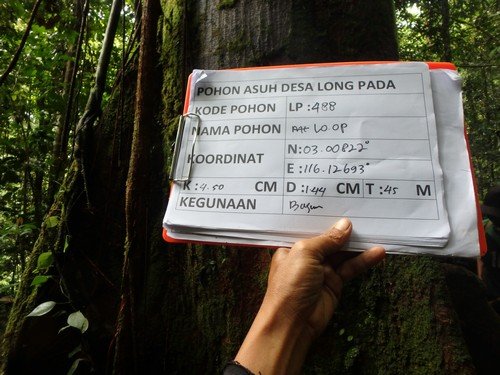 POHON ASUH DESA LONG PADA
KODE POHON LP :488
NAMA POHON LOOP
KOORDINAT N:03.00822°
E:116.12693°
K :4.50 CM D :144 CM T :45 M
KEGUNAAN